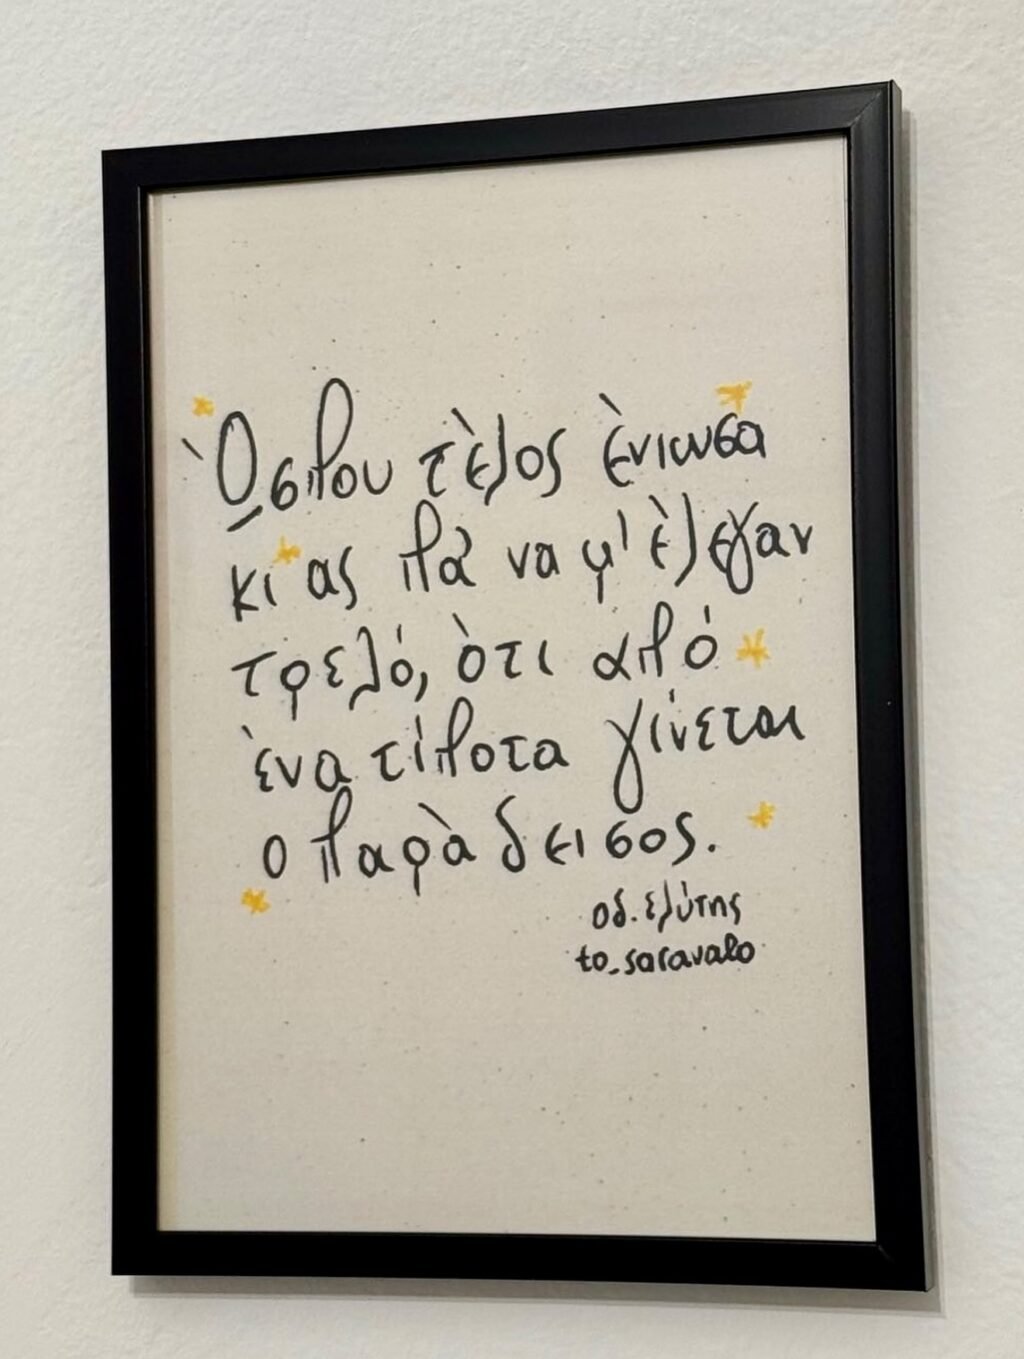 Ὥσπου τὲλος ὲνιωσα
κι ας πα να μ' ὲλεγαν
τρελό, ὸτι από
ὲνα τίποτα γίνεται
ο παρὰδεισος.
οδ. ελύτης
to_saravalo